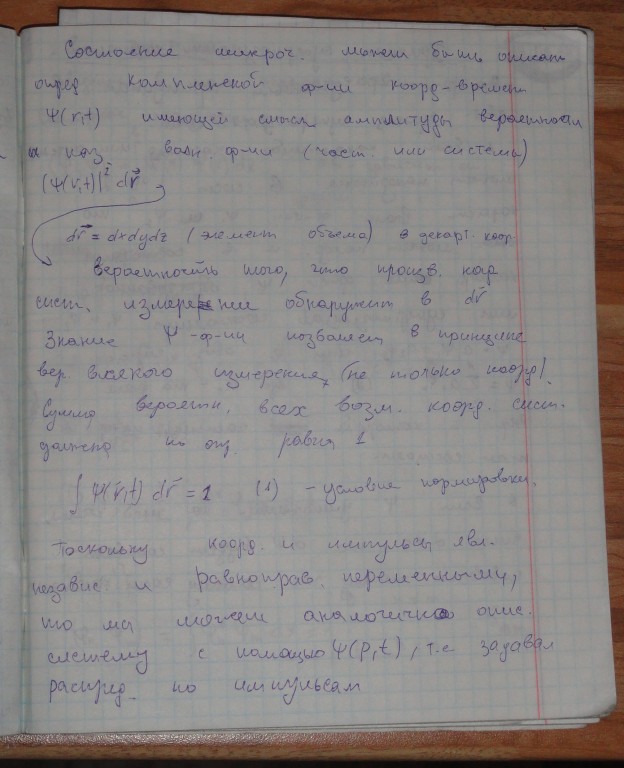 Состояние микроч. может быть описат
опред комплексной ф-ии коорд-времен
Ψ(r,t) имеющей смысл амплитуды вероятности
и наз. волн. ф-ии (част. или системы)
|Ψ(r,t)|² dr⃗
dr⃗ = dxdydz (элемент объема) в декарт. коор.
вероятность того, что произв. над
сист. измерение обнаружит в dr⃗
Знание Ψ-ф-ии позволяет в принципе
вер. всякого измерения, (не только коорд).
Сумма вероятн. всех возм. коорд. сист.
должна по опр. равна 1
∫ Ψ(r,t) dr⃗ = 1 (1) - условие нормировки.
Поскольку коорд. и импульсы явл.
независ и равноправ. переменными,
то мы можем аналогично опис.
систему с помощью Ψ(p,t), т.е задавая
распред. по импульсам